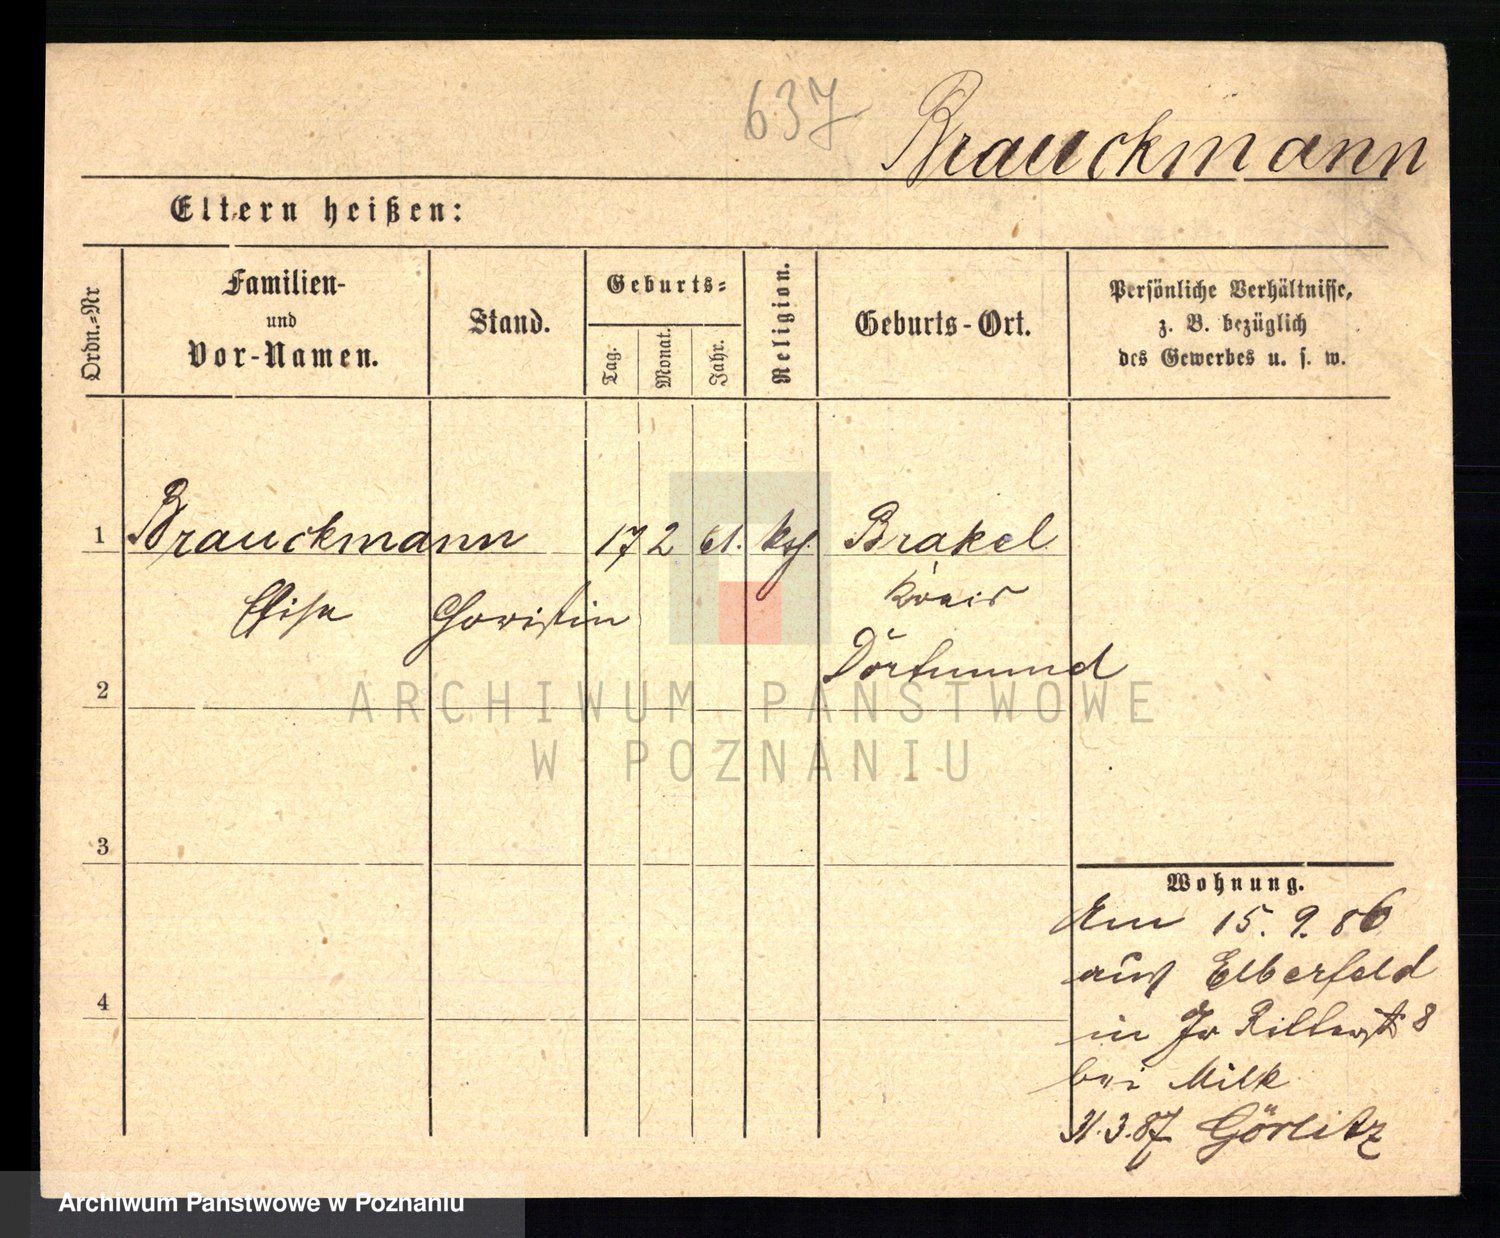 637 Brauckmann
Eltern heißen:
Ordn.-Nr
Familien-
und
Vor-Namen.
Stand.
Geburts-
Tag.
Monat.
Jahr.
Religion.
Geburts-Ort.
Persönliche Verhältnisse,
z. B. bezüglich
des Gewerbes u. s. w.
1 Brauckmann 17 2 61. Brakel
Elise Choristin Kreis
Dortmund
2
ARCHIWUM PAŃSTWOWE
W POZNANIU
3
Wohnung.
Am 15. 9. 86
aus Elberfeld
4
in Ritterst 8
bei Milk
31.3.87 Görlitz
Archiwum Państwowe w Poznaniu